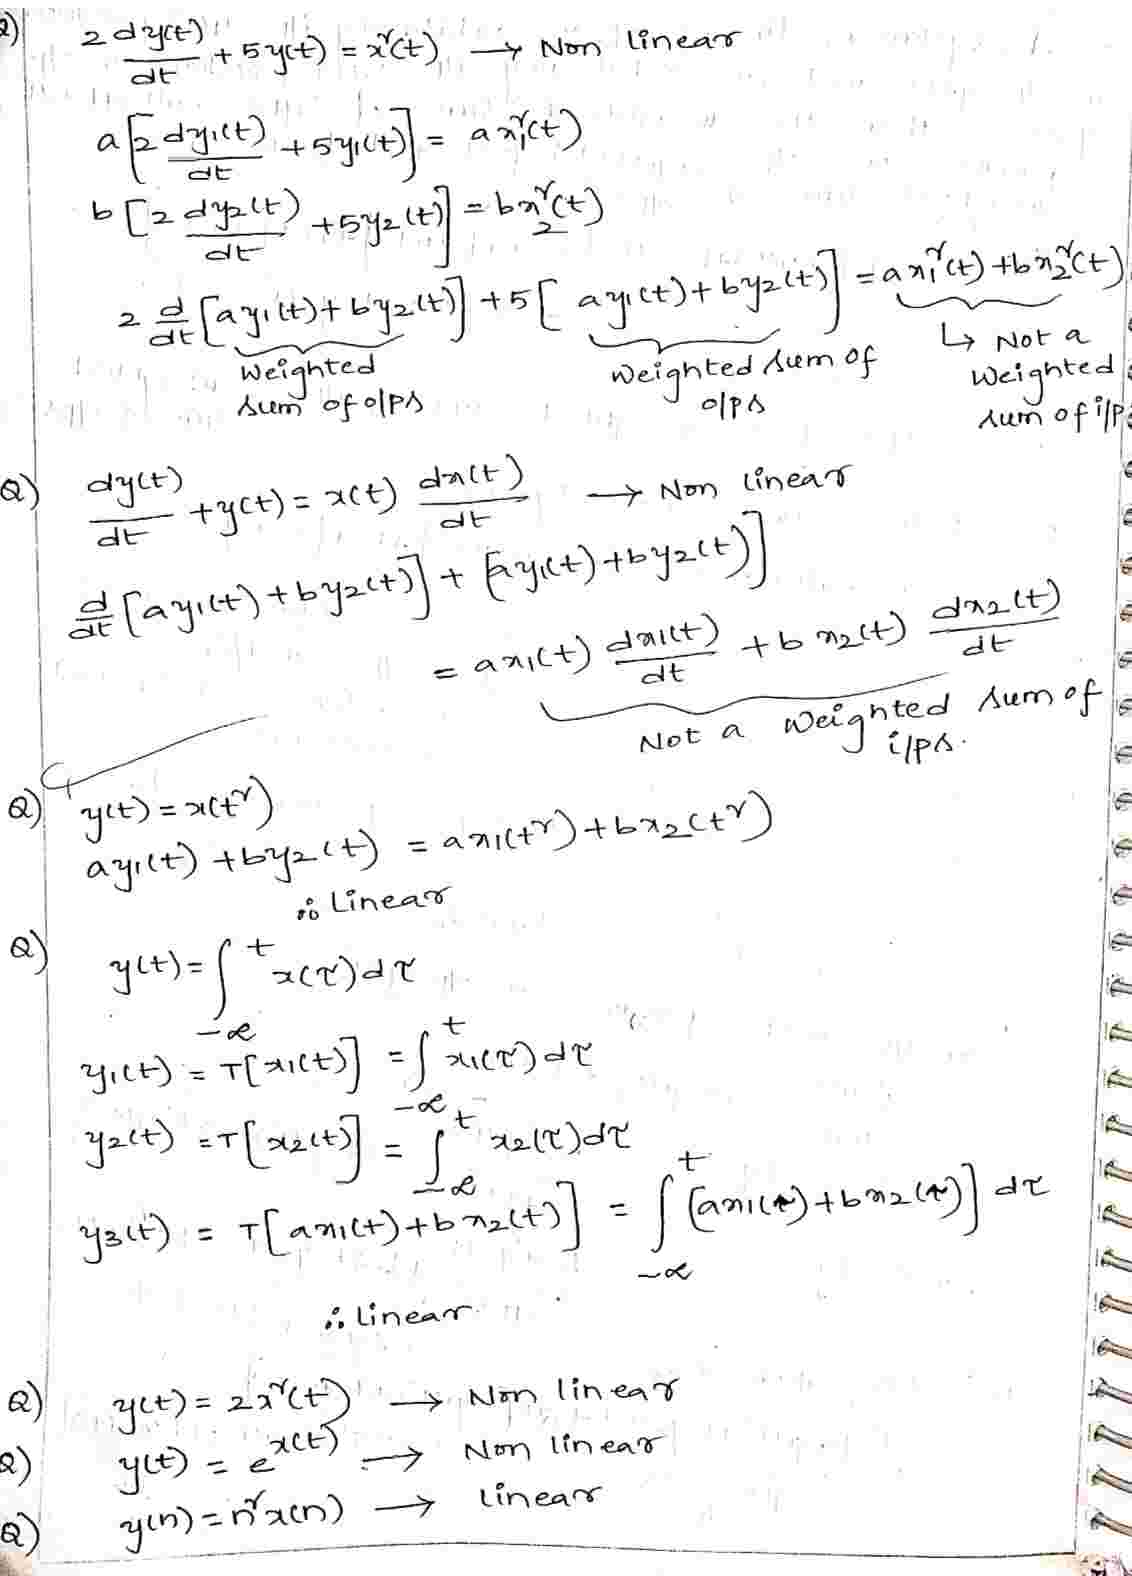 Q) 2 dy(t)/dt + 5y(t) = x²(t) → Non linear
a[2 dy₁(t)/dt + 5y₁(t)] = a x₁²(t)
b[2 dy₂(t)/dt + 5y₂(t)] = b x₂²(t)
2 d/dt [ay₁(t) + by₂(t)] + 5[ay₁(t) + by₂(t)] = a x₁²(t) + b x₂²(t)
Weighted sum of o/ps
Weighted sum of o/ps
↳ Not a Weighted sum of i/ps
Q) dy(t)/dt + y(t) = x(t) dx(t)/dt → Non linear
d/dt [ay₁(t) + by₂(t)] + [ay₁(t) + by₂(t)]
= a x₁(t) dx₁(t)/dt + b x₂(t) dx₂(t)/dt
Not a Weighted sum of i/ps.
Q) y(t) = x(t²)
ay₁(t) + by₂(t) = a x₁(t²) + b x₂(t²)
∴ Linear
Q) y(t) = ∫_{-∞}^{t} x(τ)dτ
y₁(t) = T[x₁(t)] = ∫_{-∞}^{t} x₁(τ)dτ
y₂(t) = T[x₂(t)] = ∫_{-∞}^{t} x₂(τ)dτ
y₃(t) = T[a x₁(t) + b x₂(t)] = ∫_{-∞}^{t} [a x₁(τ) + b x₂(τ)] dτ
∴ linear
Q) y(t) = 2x²(t) → Non linear
Q) y(t) = e^{x(t)} → Non linear
Q) y(n) = n²x(n) → linear